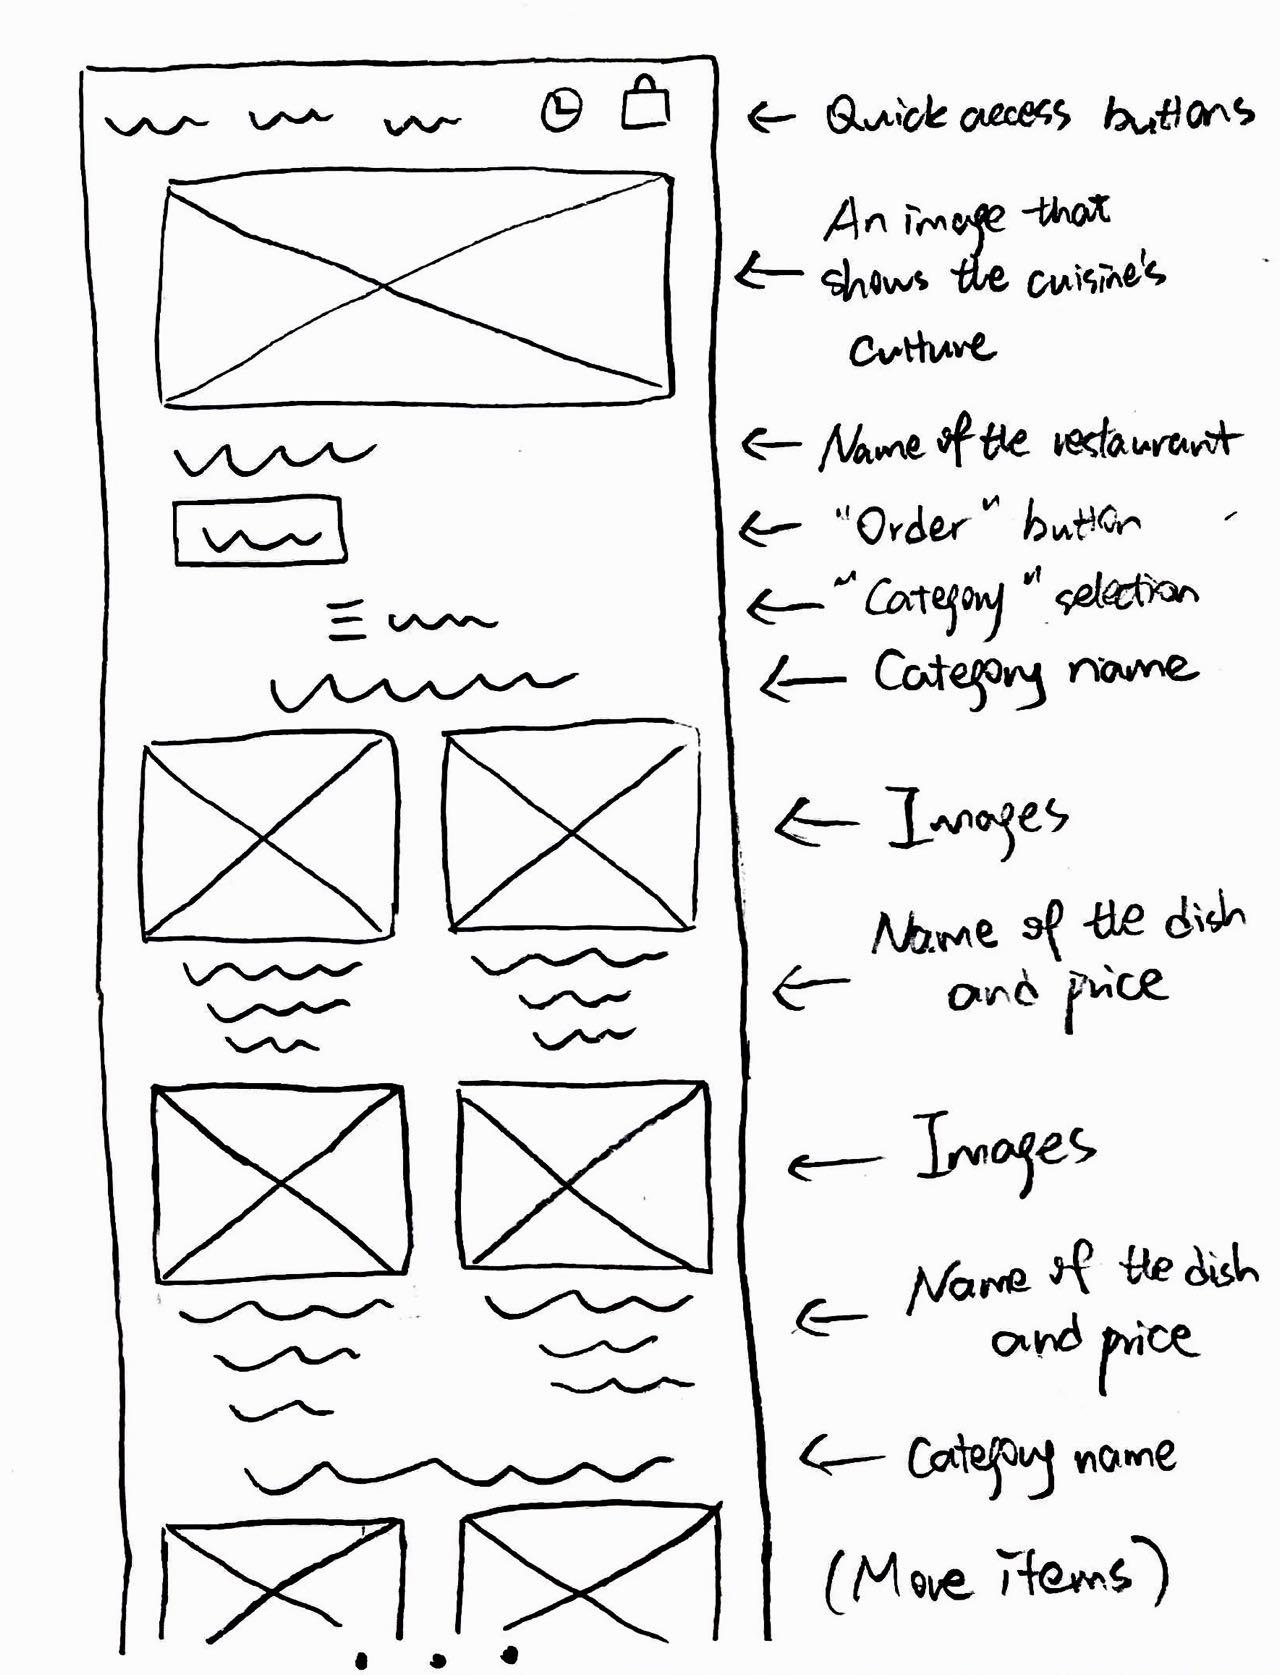 Quick access buttons
An image that
shows the cuisine's
culture
Name of the restaurant
"Order" button
"Category" selection
Category name
Images
Name of the dish
and price
Images
Name of the dish
and price
Category name
(More items)